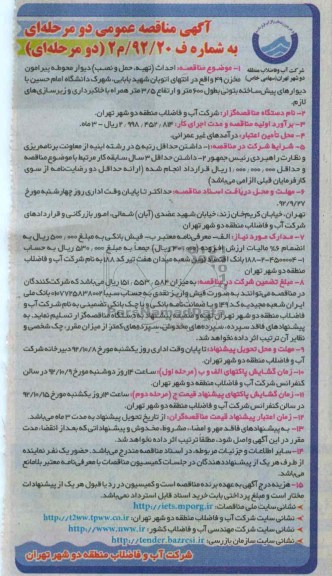 آگهی مناقصه عمومی دو مرحله‌ای
به شماره ف ۹۲/۲۰/م۲ (دو مرحله‌ای)
شرکت آب و فاضلاب منطقه
دو شهر تهران (سهامی خاص)
۱- موضوع مناقصه: احداث (تهیه، حمل و نصب) دیوار محوطه پیرامون
مخزن ۴۹ واقع در انتهای اتوبان شهید بابایی، شهرک دانشگاه امام حسین با
دیوارهای پیش‌ساخته بتونی بطول ۶۰۰ متر و ارتفاع ۳/۵ متر همراه با خاکبرداری و زیرسازی‌های
لازم.
۲- نام دستگاه مناقصه‌گزار: شرکت آب و فاضلاب منطقه دو شهر تهران.
۳- برآورد اولیه مناقصه و مدت اجرای کار: ۲،۹۹۸،۴۵۲،۸۴ ریال - ۳ ماه.
۴- محل تأمین اعتبار: درآمدهای غیر عمرانی.
۵- شرایط شرکت در مناقصه: ۱- داشتن حداقل رتبه ۵ در رشته ابنیه از معاونت برنامه‌ریزی
و نظارت راهبردی رئیس جمهور ۲- داشتن حداقل ۳ سال سابقه کار مرتبط با موضوع مناقصه
و حداقل ۱،۰۰۰،۰۰۰،۰۰۰ ریال قرارداد انجام شده (ارائه حداقل دو رضایت‌نامه از سوی
کارفرمایان قبلی الزامی می‌باشد)
۶- مهلت و محل دریافت اسناد مناقصه: حداکثر تا پایان وقت اداری روز چهارشنبه مورخ
۹۲/۹/۲۷
تهران، خیابان کریم‌خان زند، خیابان شهید عضدی (آبان) شمالی، امور بازرگانی و قراردادهای
شرکت آب و فاضلاب منطقه دو شهر تهران
۷- مدارک مورد نیاز: الف- معرفی‌نامه معتبر ب- فیش بانکی به مبلغ ۵۰۰،۰۰۰ ریال به
انضمام ۶٪ مالیات ارزش افزوده جمعاً به مبلغ ۵۳۰،۰۰۰ ریال به حساب
بانک اقتصاد نوین شعبه میدان هفت تیر کد ۱۸۸ به نام شرکت آب و فاضلاب
منطقه دو شهر تهران
۸- مبلغ تضمین شرکت در مناقصه: به میزان ۱۵۱،۵۵۳،۵۸۴ ریال می‌باشد که شرکت‌کنندگان
در مناقصه می‌توانند به صورت فیش واریز نقدی به حساب سیبا بانک ملی
ایران شعبه مجیدیه و یا ضمانتنامه بانکی و یا چک بانکی تضمینی به نام شرکت آب و
فاضلاب منطقه دو شهر تهران تهیه و به دستگاه مناقصه‌گزار تسلیم نماید. به
پیشنهادهای فاقد سپرده، سپرده‌های مخدوش، سپرده‌های کمتر از میزان مقرر، چک شخصی و
نظایر آن ترتیب اثر داده نخواهد شد.
۹- مهلت و محل تحویل پیشنهادات: تا پایان وقت اداری روز یکشنبه مورخ ۹۲/۱۰/۸ دبیرخانه شرکت
آب و فاضلاب منطقه دو شهر تهران.
۱۰- زمان گشایش پاکتهای الف و ب (مرحله اول): ساعت ۱۴ روز دوشنبه مورخ ۹۲/۱۰/۹ در سالن
کنفرانس شرکت آب و فاضلاب منطقه دو شهر تهران.
۱۱- زمان گشایش پاکتهای پیشنهاد قیمت ج (مرحله دوم): ساعت ۱۴ روز یکشنبه مورخ ۹۲/۱۰/۱۵
در سالن کنفرانس شرکت آب و فاضلاب منطقه دو شهر تهران.
۱۲- زمان اعتبار پیشنهاد قیمت مناقصه‌گران: از تاریخ تحویل پیشنهاد به مدت ۳ ماه می‌باشد.
۱۳- به پیشنهادهای فاقد مهر و امضاء، مشروط، مخدوش و پیشنهاداتی که بعد از انقضاء مدت
مقرر در این آگهی واصل شود، مطلقاً ترتیب اثر داده نخواهد شد.
۱۴- سایر اطلاعات و جزئیات مربوطه، در اسناد مناقصه مندرج می‌باشد. حضور یک نفر نماینده
از طرف هر یک از پیشنهاددهندگان در جلسات کمیسیون مناقصات با معرفی‌نامه معتبر بلامانع
می‌باشد.
۱۵- هزینه درج آگهی به عهده برنده مناقصه است و کمیسیون در رد یا قبول هر یک از پیشنهادات
مختار است و مبلغ پرداختی بابت خرید اسناد قابل استرداد نمی‌باشد.
- نشانی سایت ملی مناقصات: http://iets.mporg.ir
- نشانی سایت شرکت آب و فاضلاب منطقه دو شهر تهران: http://t2ww.tpww.co.ir
- نشانی سایت شرکت مهندسی آب و فاضلاب کشور: http://www.nww.ir
- نشانی سایت سازمان بازرسی: http://tender.bazresi.ir
شرکت آب و فاضلاب منطقه دو شهر تهران